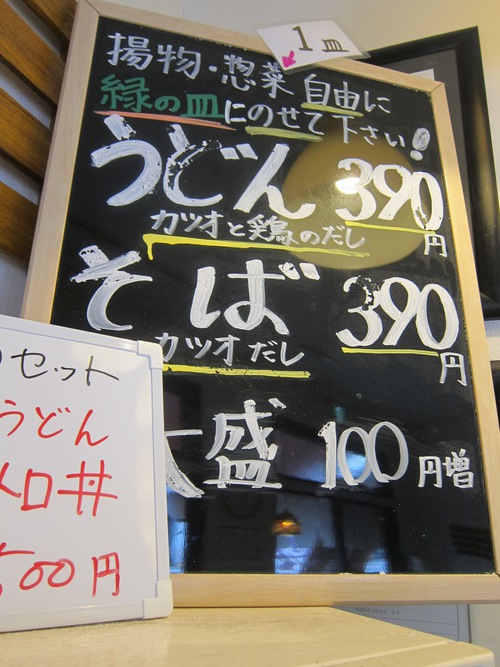 1皿
揚物・惣菜 自由に
緑の皿にのせて下さい!
うどん 390円
カツオと鶏のだし
そば 390円
カツオだし
大盛 100円増
セット
うどん
00円